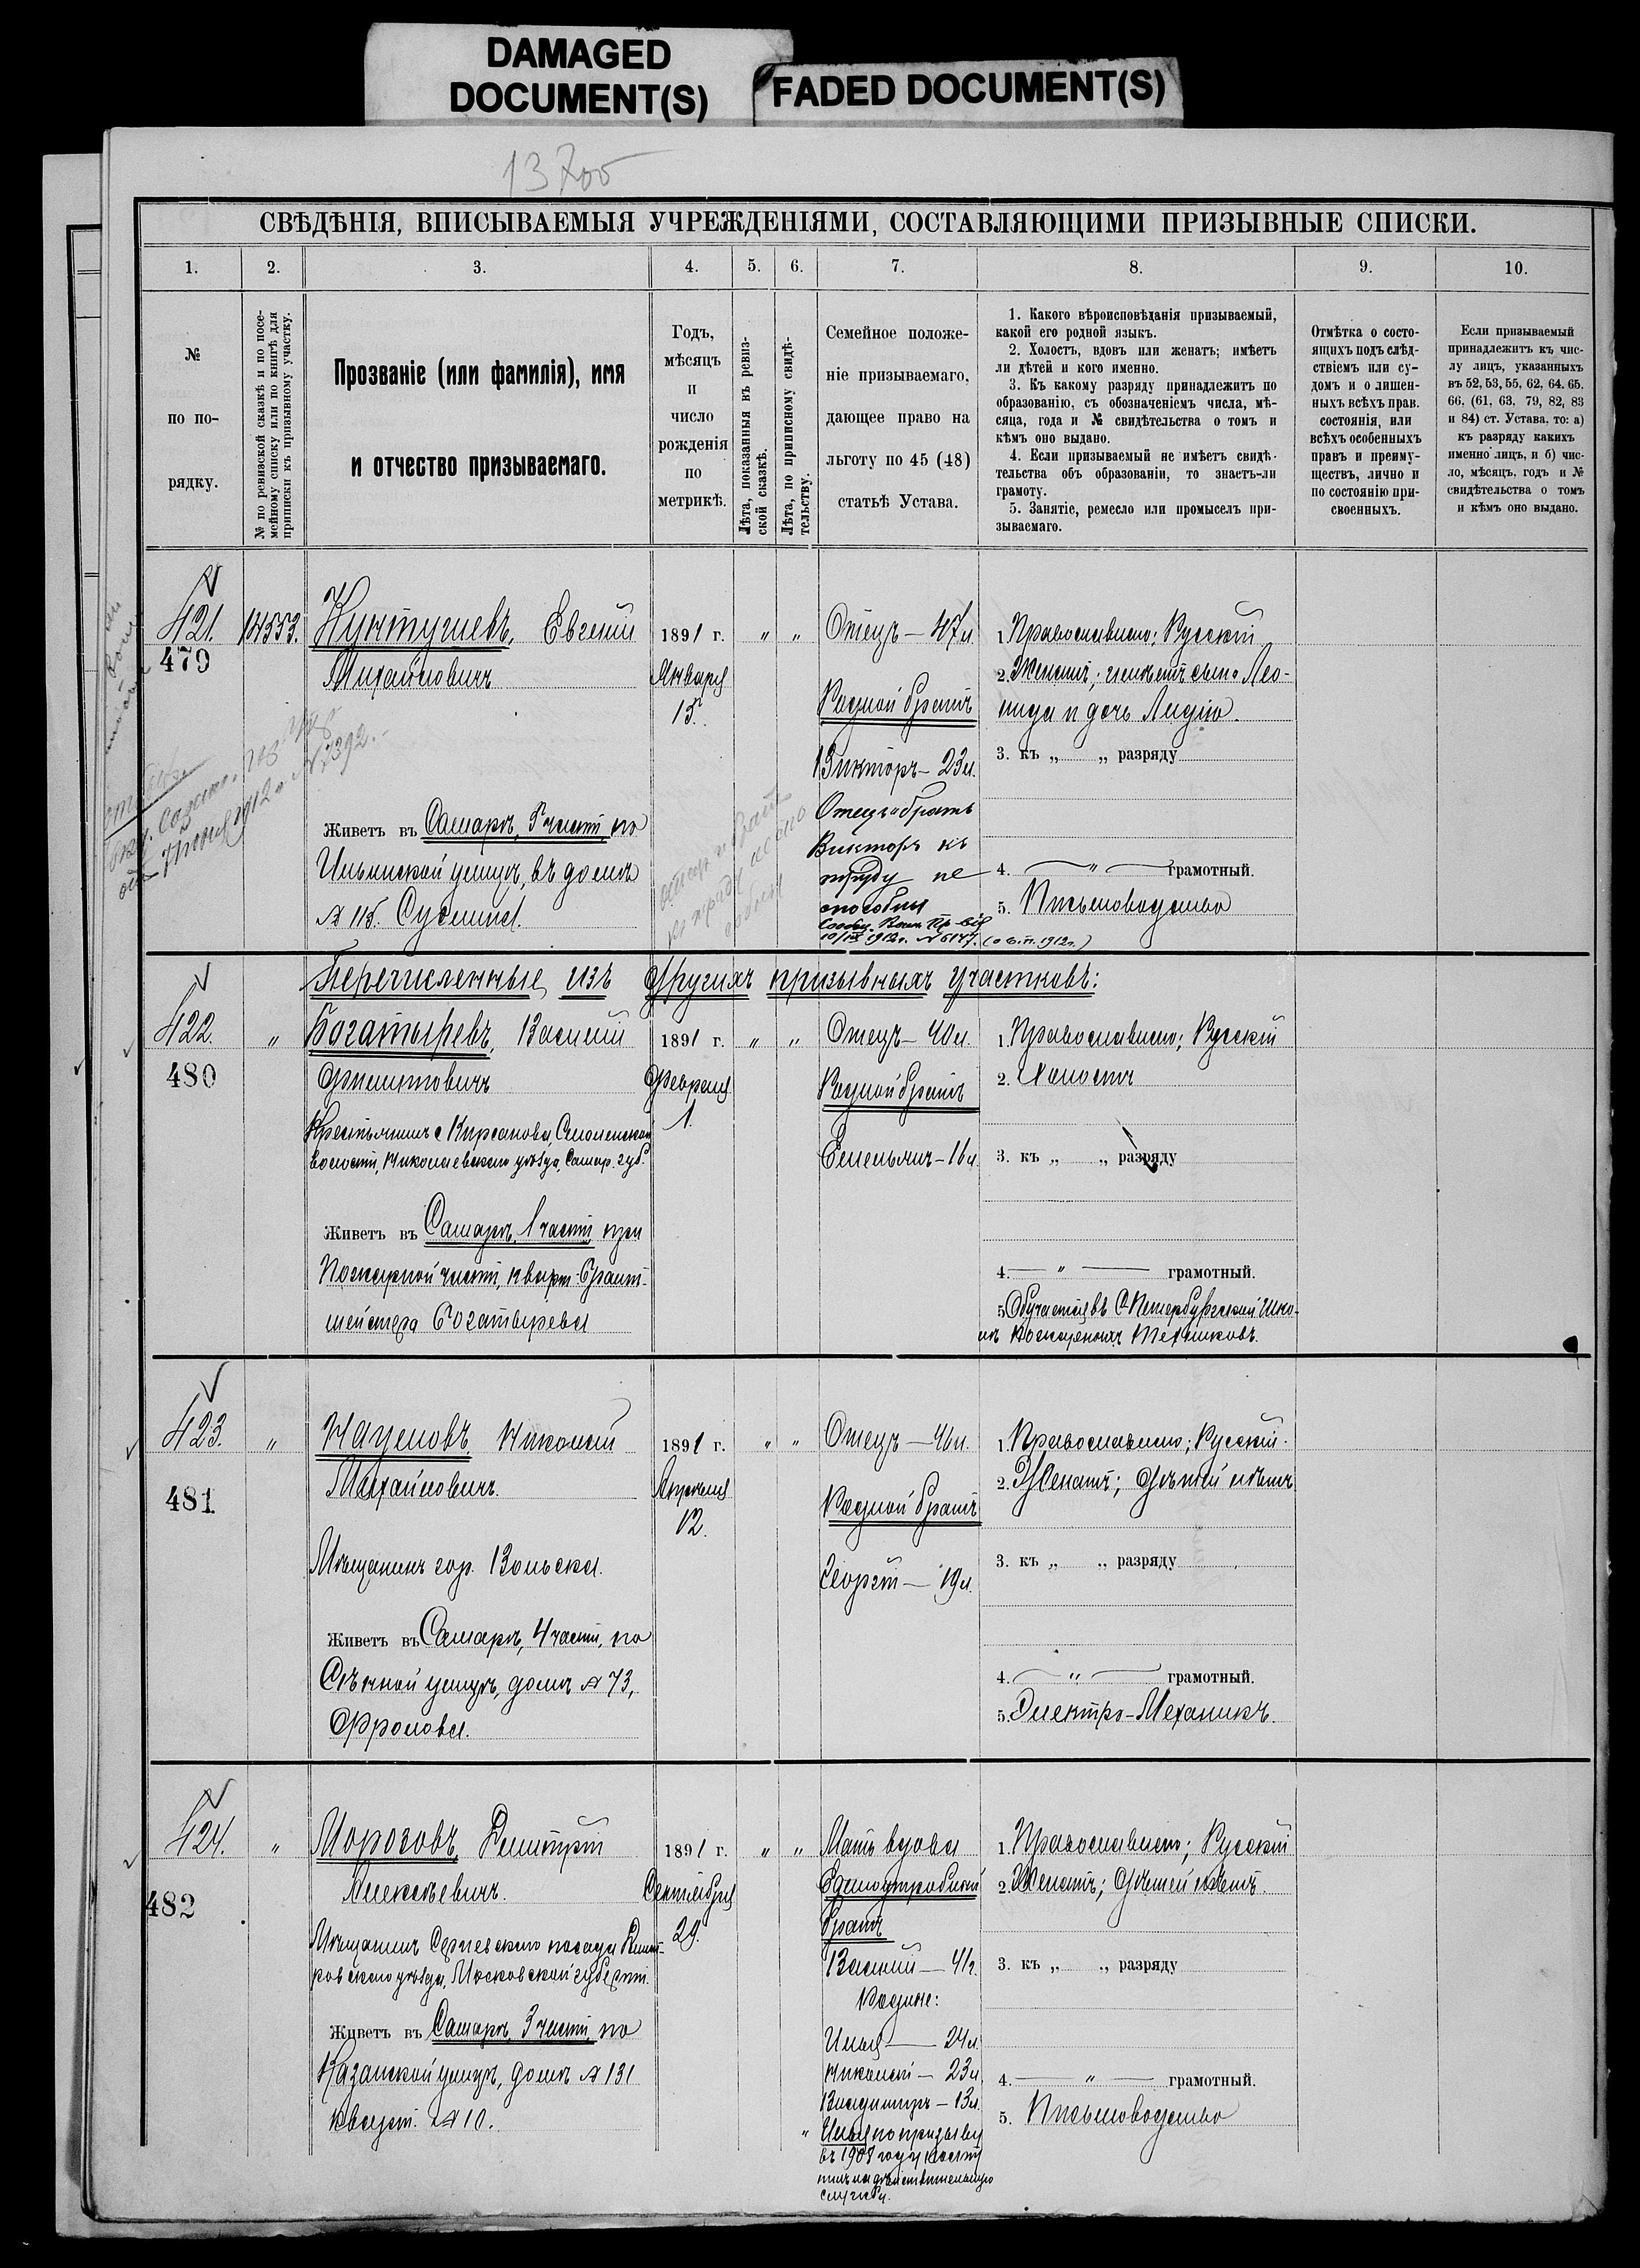 DAMAGED
DOCUMENT(S)
FADED DOCUMENT(S)
СВѢДѢНІЯ, ВПИСЫВАЕМЫЯ УЧРЕЖДЕНІЯМИ, СОСТАВЛЯЮЩИМИ ПРИЗЫВНЫЕ СПИСКИ.
1. 2. 3. 4. 5. 6. 7. 8. 9. 10.
№
по по-
рядку.
№ по ревизской сказкѣ и по посе-
мейному списку или по книгѣ для
приписки къ призывному участку.
Прозваніе (или фамилія), имя
и отчество призываемаго.
Годъ,
мѣсяцъ
и
число
рожденія
по
метрикѣ.
Лѣта, показанныя въ ревиз-
ской сказкѣ.
Лѣта, по приписному свидѣ-
тельству.
Семейное положе-
ніе призываемаго,
дающее право на
льготу по 45 (48)
статьѣ Устава.
1. Какого вѣроисповѣданія призываемый,
какой его родной языкъ.
2. Холостъ, вдовъ или женатъ; имѣетъ
ли дѣтей и кого именно.
3. Къ какому разряду принадлежитъ по
образованію, съ обозначеніемъ числа, мѣ-
сяца, года и № свидѣтельства о томъ и
кѣмъ оно выдано.
4. Если призываемый не имѣетъ свидѣ-
тельства объ образованіи, то знаетъ-ли
грамоту.
5. Занятіе, ремесло или промыселъ при-
зываемаго.
Отмѣтка о состо-
ящихъ подъ слѣд-
ствіемъ или су-
домъ и о лишен-
ныхъ всѣхъ прав.
состоянія, или
всѣхъ особенныхъ
правъ и преиму-
ществъ, лично и
по состоянію при-
своенныхъ.
Если призываемый
принадлежитъ къ чис-
лу лицъ, указанныхъ
въ 52, 53, 55, 62, 64, 65,
66, (61, 63, 79, 82, 83
и 84) ст. Устава, то: а)
къ разряду какихъ
именно лицъ, и б) чис-
ло, мѣсяцъ, годъ и №
свидѣтельства о томъ
и кѣмъ оно выдано.
421.
479
Евгеній
Михайловичъ
Живетъ въ Самарѣ, 5 части, по
Ильинской улицѣ, въ домѣ
№ 115.
1891 г.
Января
15.
" "
Отецъ — 47 л.
Родной братъ
Викторъ — 23 л.
Отецъ и братъ
Викторъ къ
труду не
способны
1. Православное; Русскій
2. Женатъ; имѣетъ сына Лео-
нида и дочь Лидію.
3. къ „ „ разряду
4. " грамотный.
5. Письмоводство
Перечисленные изъ другихъ призывныхъ участковъ:
422.
480
"
Богатыревъ, Василій
Филиповичъ
Крестьянинъ с. Кирсановки, Смоленской
волости, Николаевскаго уѣзда, Самар. губ.
Живетъ въ Самарѣ, 1 части, при
Пожарной части, кварт. Брант-
мейстера Богатырева
1891 г.
Февраля
1.
" "
Отецъ — 40 л.
Родной братъ
Емельянъ — 16 л.
1. Православное; Русскій
2. Холостъ
3. къ „ „ разряду
4. " грамотный.
5. Обучается въ С. Петербургской шко-
лѣ пожарныхъ техниковъ.
423.
481
"
Николай
Михайловичъ.
Мѣщанинъ гор. Вольска.
Живетъ въ Самарѣ, 4 части, по
Сѣнной улицѣ, домъ № 73,
Фролова.
1891 г.
Апрѣля
12.
" "
Отецъ — 46 л.
Родной братъ
Георгій — 19 л.
1. Православное; Русскій.
2. Женатъ; дѣтей нѣтъ
3. къ „ „ разряду
4. " грамотный.
5. Электро-Механикъ.
424.
482
"
Морозовъ, Дмитрій
Алексѣевичъ.
Мѣщанинъ Сергіевскаго посада Дмит-
ровскаго уѣзда, Московской губерніи.
Живетъ въ Самарѣ, 3 части, по
Казанской улицѣ, домъ № 131
кварт. № 10.
1891 г.
Сентября
29.
" "
Мать вдова
Единоутробный
братъ
Василій — 4 г.
Родные:
Илья — 24 л.
Николай — 23 л.
Владиміръ — 13 л.
" Илья по призыву
въ 1908 году посту-
пилъ на дѣйствительную
службу.
1. Православное; Русскій
2. Женатъ; дѣтей нѣтъ.
3. къ „ „ разряду
4. " грамотный.
5. Письмоводство